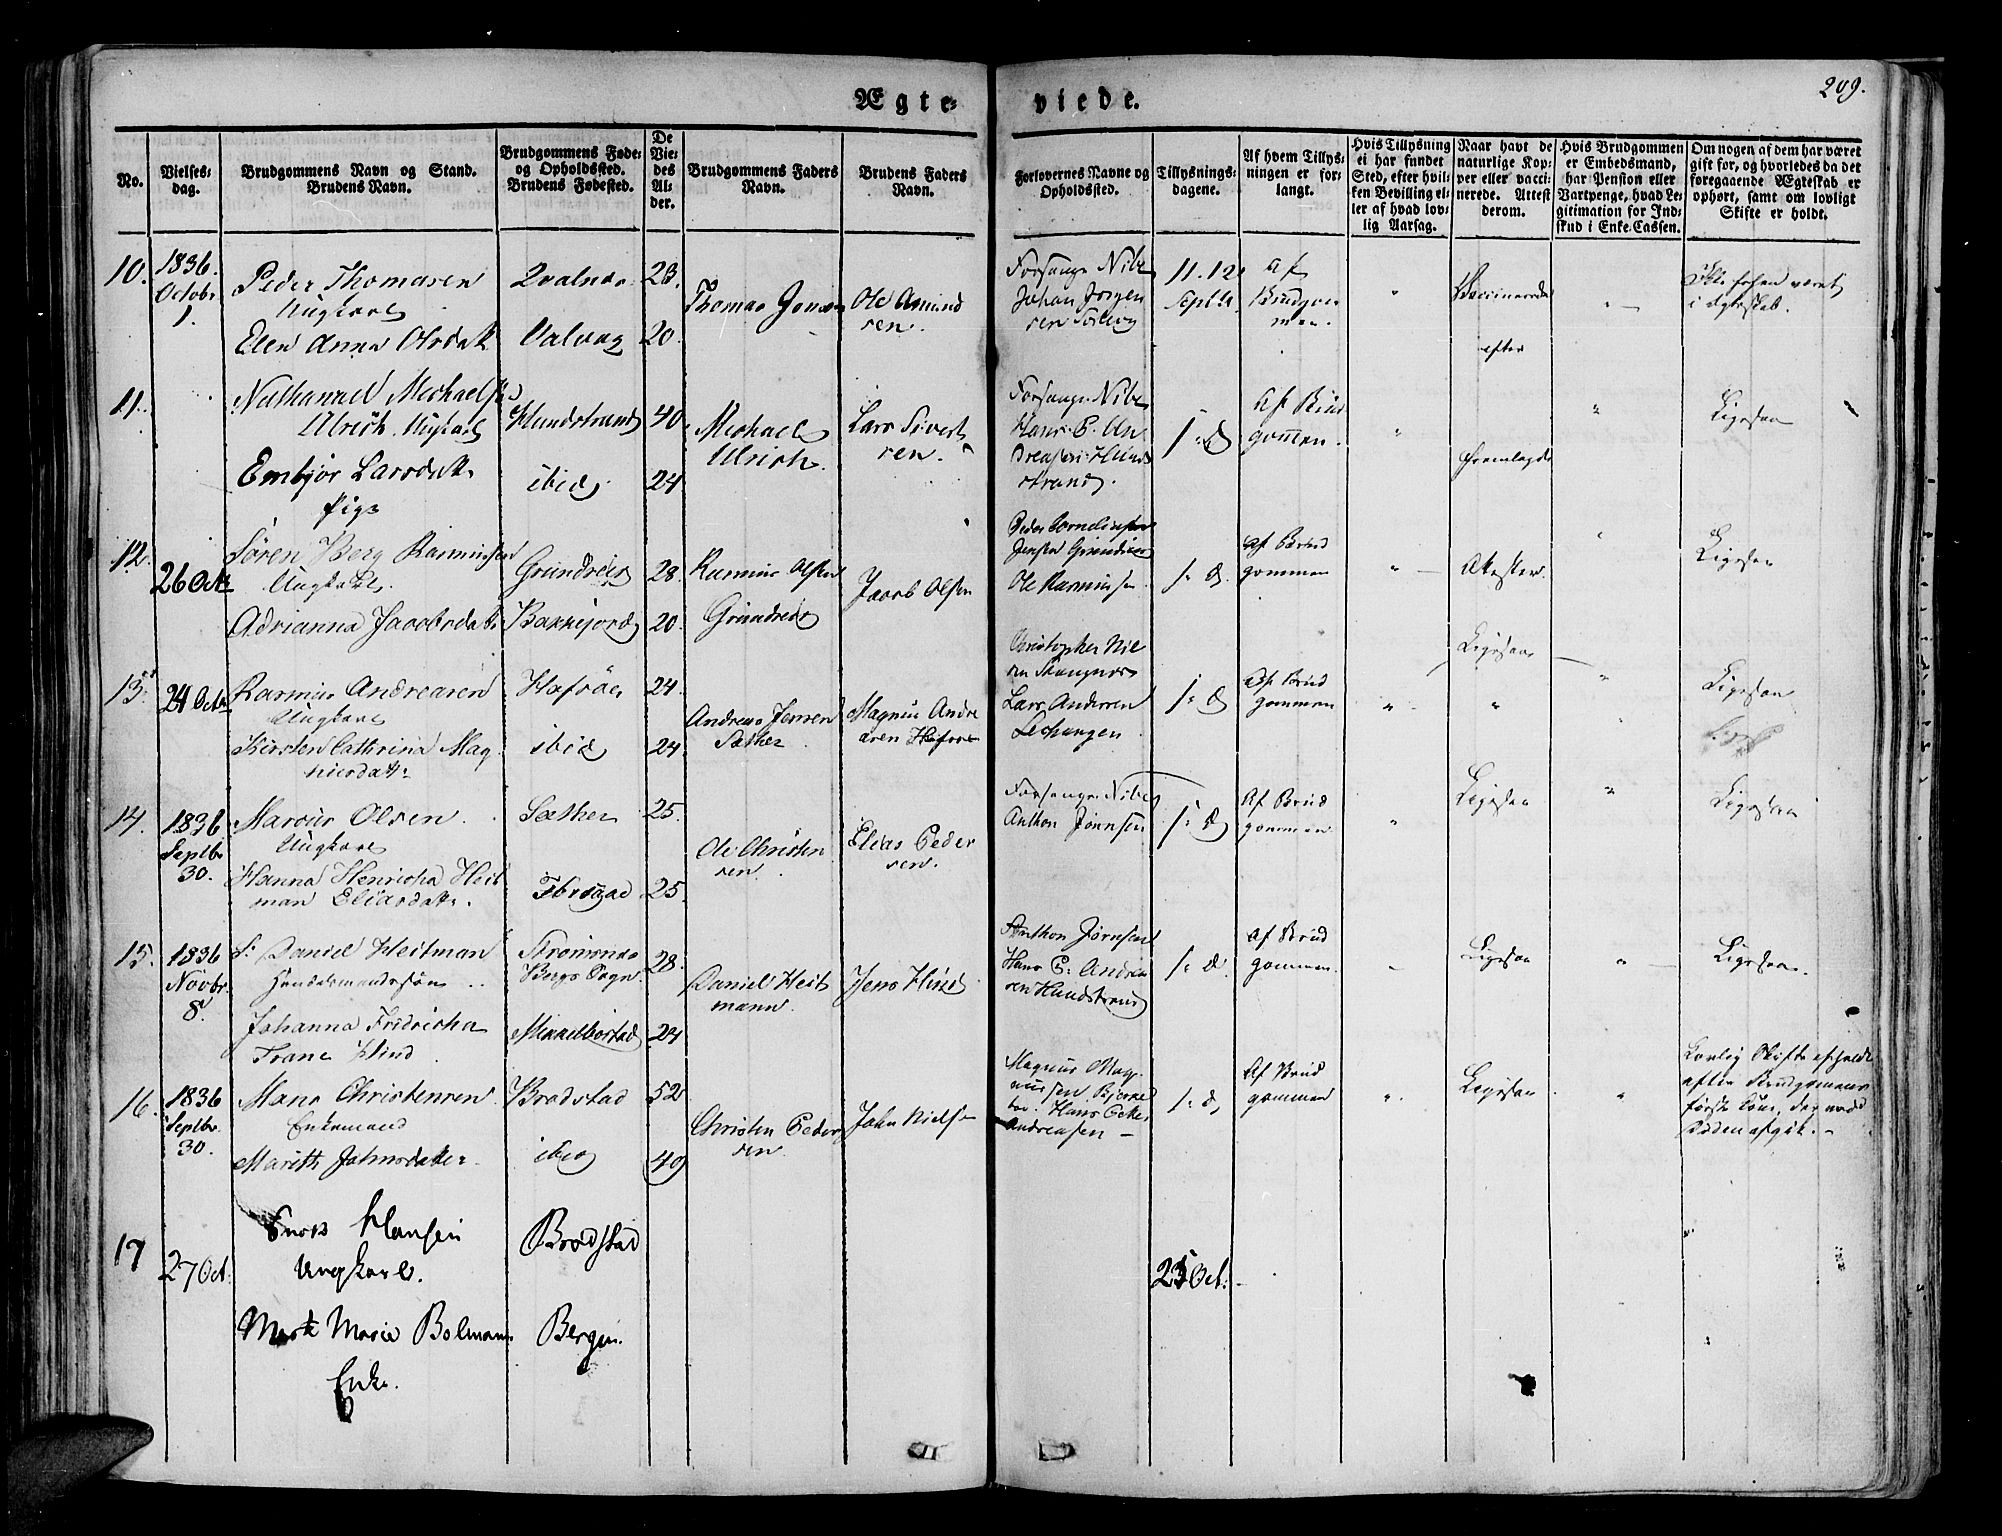 209.
Ægte- viede.
No.
Vielses-
dag.
Brudgommens Navn og Stand.
Brudens Navn.
Brudgommens Føde-
og Opholdssted.
Brudens Fødested.
De
Vie-
des
Al-
der.
Brudgommens Faders
Navn.
Brudens Faders
Navn.
Forlovernes Navne og
Opholdssted.
Tillysnings-
dagene.
Af hvem Tillys-
ningen er for-
langt.
Hvis Tillysning
ei har fundet
Sted, efter hvil-
ken Bevilling el-
ler af hvad lov-
lig Aarsag.
Naar havt de
naturlige Kop-
per eller vacci-
nerede. Attest
derom.
Hvis Brudgommen
er Embedsmand,
har Pension eller
Vartpenge, hvad Le-
gitimation for Ind-
skud i Enke-Cassen.
Om nogen af dem har været
gift før, og hvorledes da det
foregaaende Ægteskab er
ophørt, samt om lovligt
Skifte er holdt.
10. 1836. Octobr 1.
Peder Thomasen
Ungkarl
Elen Anna Olsdatt
Valvaag
23.
20.
Thomas Jonsen
Ole Amund
sen.
Johan Jørgen
sen
11.12
Septbr.
Af
Brudgom
men.
Vaccinerede
efter
i Ægteskab.
11.
Nathanael Michaelsen
Ulrich Ungkarl
Embjør Larsdatt.
Pige
Hundstrand
ibid.
40
24
Michael
Ulrich.
Lars Sivert
sen.
Hans P. An
dreasen Hund
strand.
Af Brud
gommen.
fremlagde
Ligesaa
12. 26 Octr
Søren Berg Rasmussen
Ungkarl.
Adrianna Jacobsdatt
Grundrei
Bakkejord
28
20.
Rasmus Olsen
Jacob Olsen
Peder Cornelius
Jensen
Ole Rasmussen
Af Brud
gommen
Attester.
Ligesaa
13. 24 Octr
Rasmus Andreasen
Ungkarl
Kirsten Cathrina Mag
nusdattr
Hafsøe
ibid
24.
24.
Andreas Jensen
Sæther
Magnus Andre
asen
Christopher Niel
sen
Lars Andersen
Lechangen
Af Brud
gommen
Ligesaa
Ligesaa
14. 1836 Septbr 30.
Marcus Olsen
Ungkarl
Hanna Henricha Heit
man Eliasdattr.
Sæther
25.
25.
Ole Christen
sen.
Elias Peder
sen.
Anthon Jørnsen
Af Brud
gommen
Ligesaa
Ligesaa
15. 1836 Novbr. 8.
S: Daniel Heitman
Johanna Fridricha
Hind
Bergs Sogn
Mikkelbostad
28.
24
Daniel Heit
mann.
Jens Hind
Anthon Jørnsen
Hans P: Andrea
sen Hundstrand
Af Brud
gommen.
Ligesaa
Ligesaa.
16. 1836 Septbr. 30.
Hans Christensen
Enkemand
Marith Johnsdatter
Brodstad
ibid
52
49
Christen Peder
sen.
John Nielsen
Magnus Mag-
nussen
Hans Peter
Andreasen
Af Brud
gommen
Ligesaa
Lovlig Skifte afholdt
efter Brudgommens
første Kone, der ved
Døden afgik.
17 27 Oct.
Hansen
Ungkarl.
Marie Bolmann
Enke.
Brodstad
Bergen.
Oct.